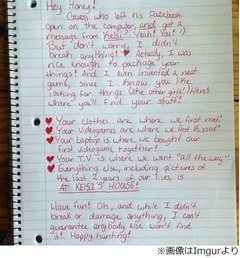 Hey Honey!
Guess who left his Facebook
open on the computer, and got a
message from Keisi? Yeah! You! :)
But don't worry, I didn't
break anything! ♥ Actually, I was
nice enough to package your
things! And I even invented a neat
game, since I know you like
looking for things (like other girls)! Here's
where you'll find your stuff!
♥ Your clothes are where we first met!
♥ Your videogames are where we first kissed!
♥ Your Laptop is where we bought our
first videogame together!
♥ Your T.V is where we went "all the way".
♥ Everything else, including pictures of
the last 2 years of our lives, is
AT KEISI'S HOUSE!
Have fun! Oh, and while I didn't
break or damage anything, I can't
guarantee anybody else won't find
it! Happy hunting!
※画像はImgurより